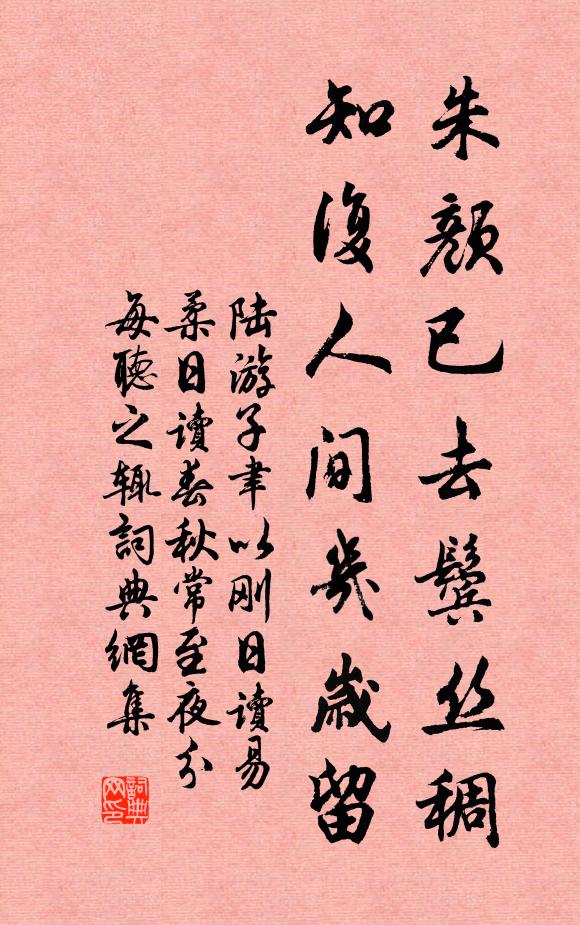 朱颜已去鬓丝稠
知復人间幾歲留
陆游子聿以刚日讀易
柔日讀春秋常至夜分
每聽之辄詞典網集
詞典网印